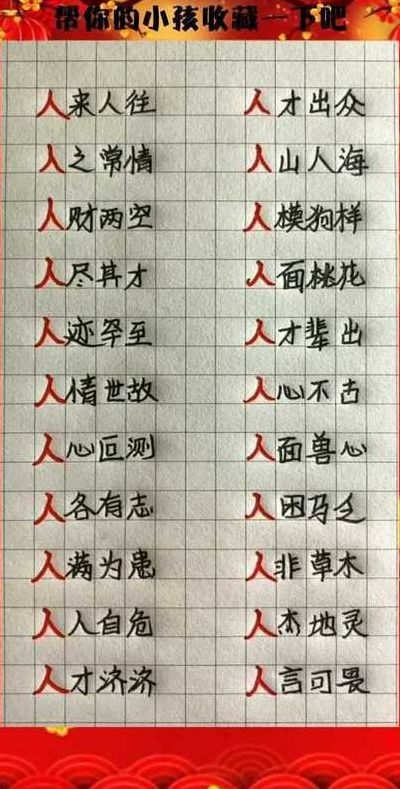 帮你的小孩收藏一下吧
人来人往 人才出众
人之常情 人山人海
人财两空 人模狗样
人尽其才 人面桃花
人迹罕至 人才辈出
人情世故 人心不古
人心叵测 人面兽心
人各有志 人困马乏
人满为患 人非草木
人人自危 人杰地灵
人才济济 人言可畏